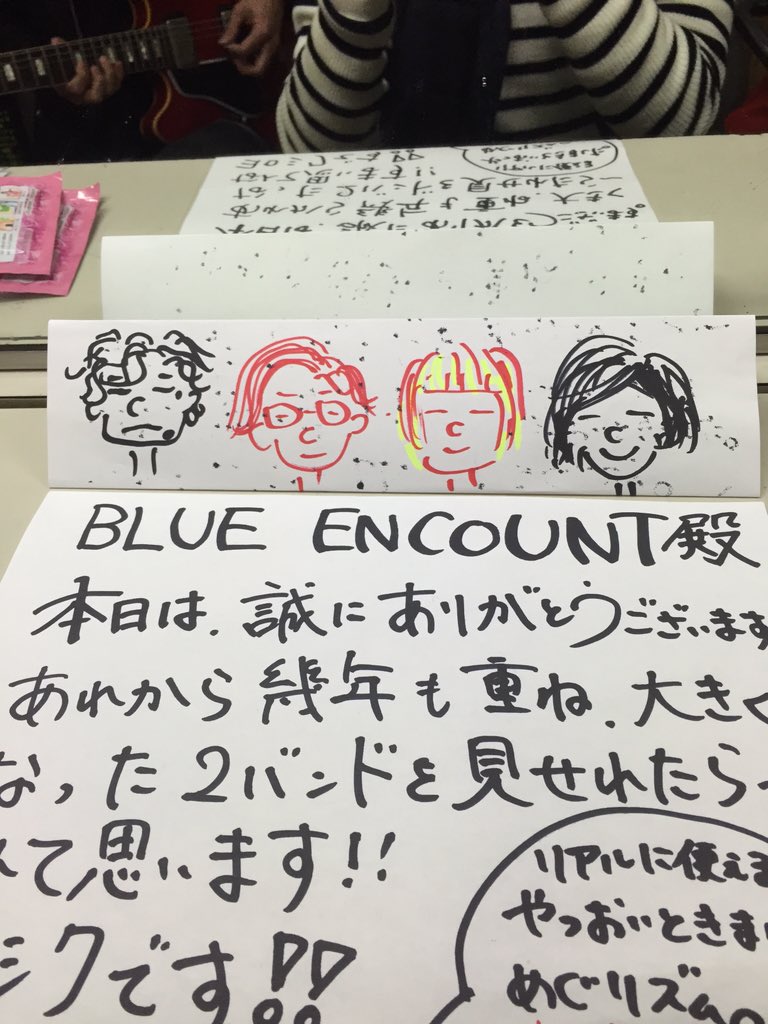 BLUE ENCOUNT殿
本日は、誠にありがとうございます
あれから幾年も重ね、大きく
なった2バンドを見せれたらっ
て思います!!
シクです!!
リアルに使える
やつおいときま
めぐリズム。